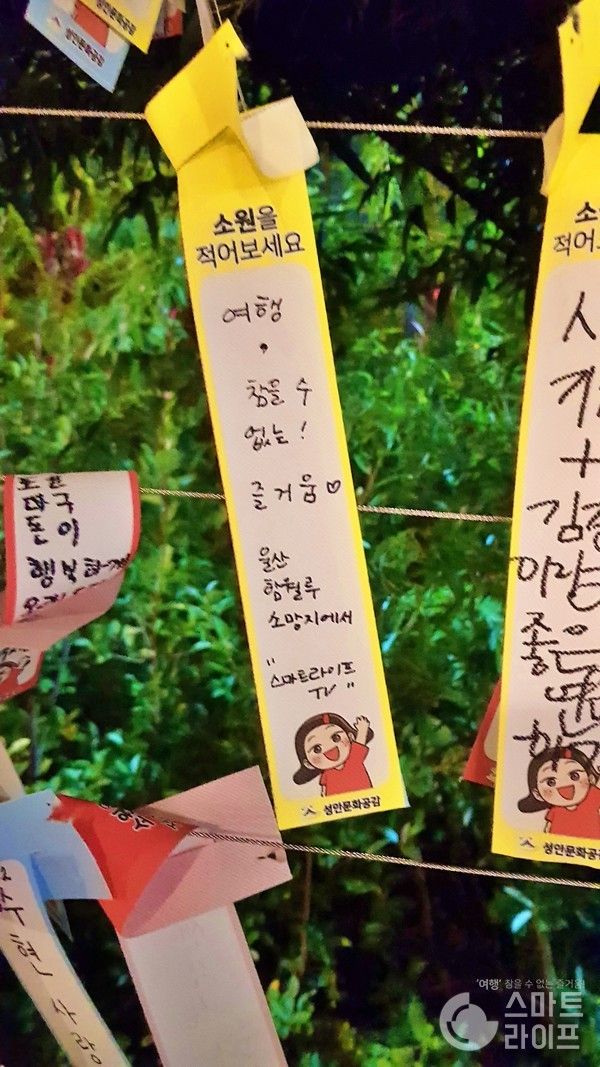 성안문화공감
소원을
적어보세요
여행
,
참을 수
없는!
즐거움♡
울산
함월루
소망지에서
"스마트라이프
TV"
성안문화공감
소
적어
+
이랑
좋은
성안문화공감
돈이
행복하게
현
사랑
'여행' 참을 수 없는 즐거움!
스마트
라이프